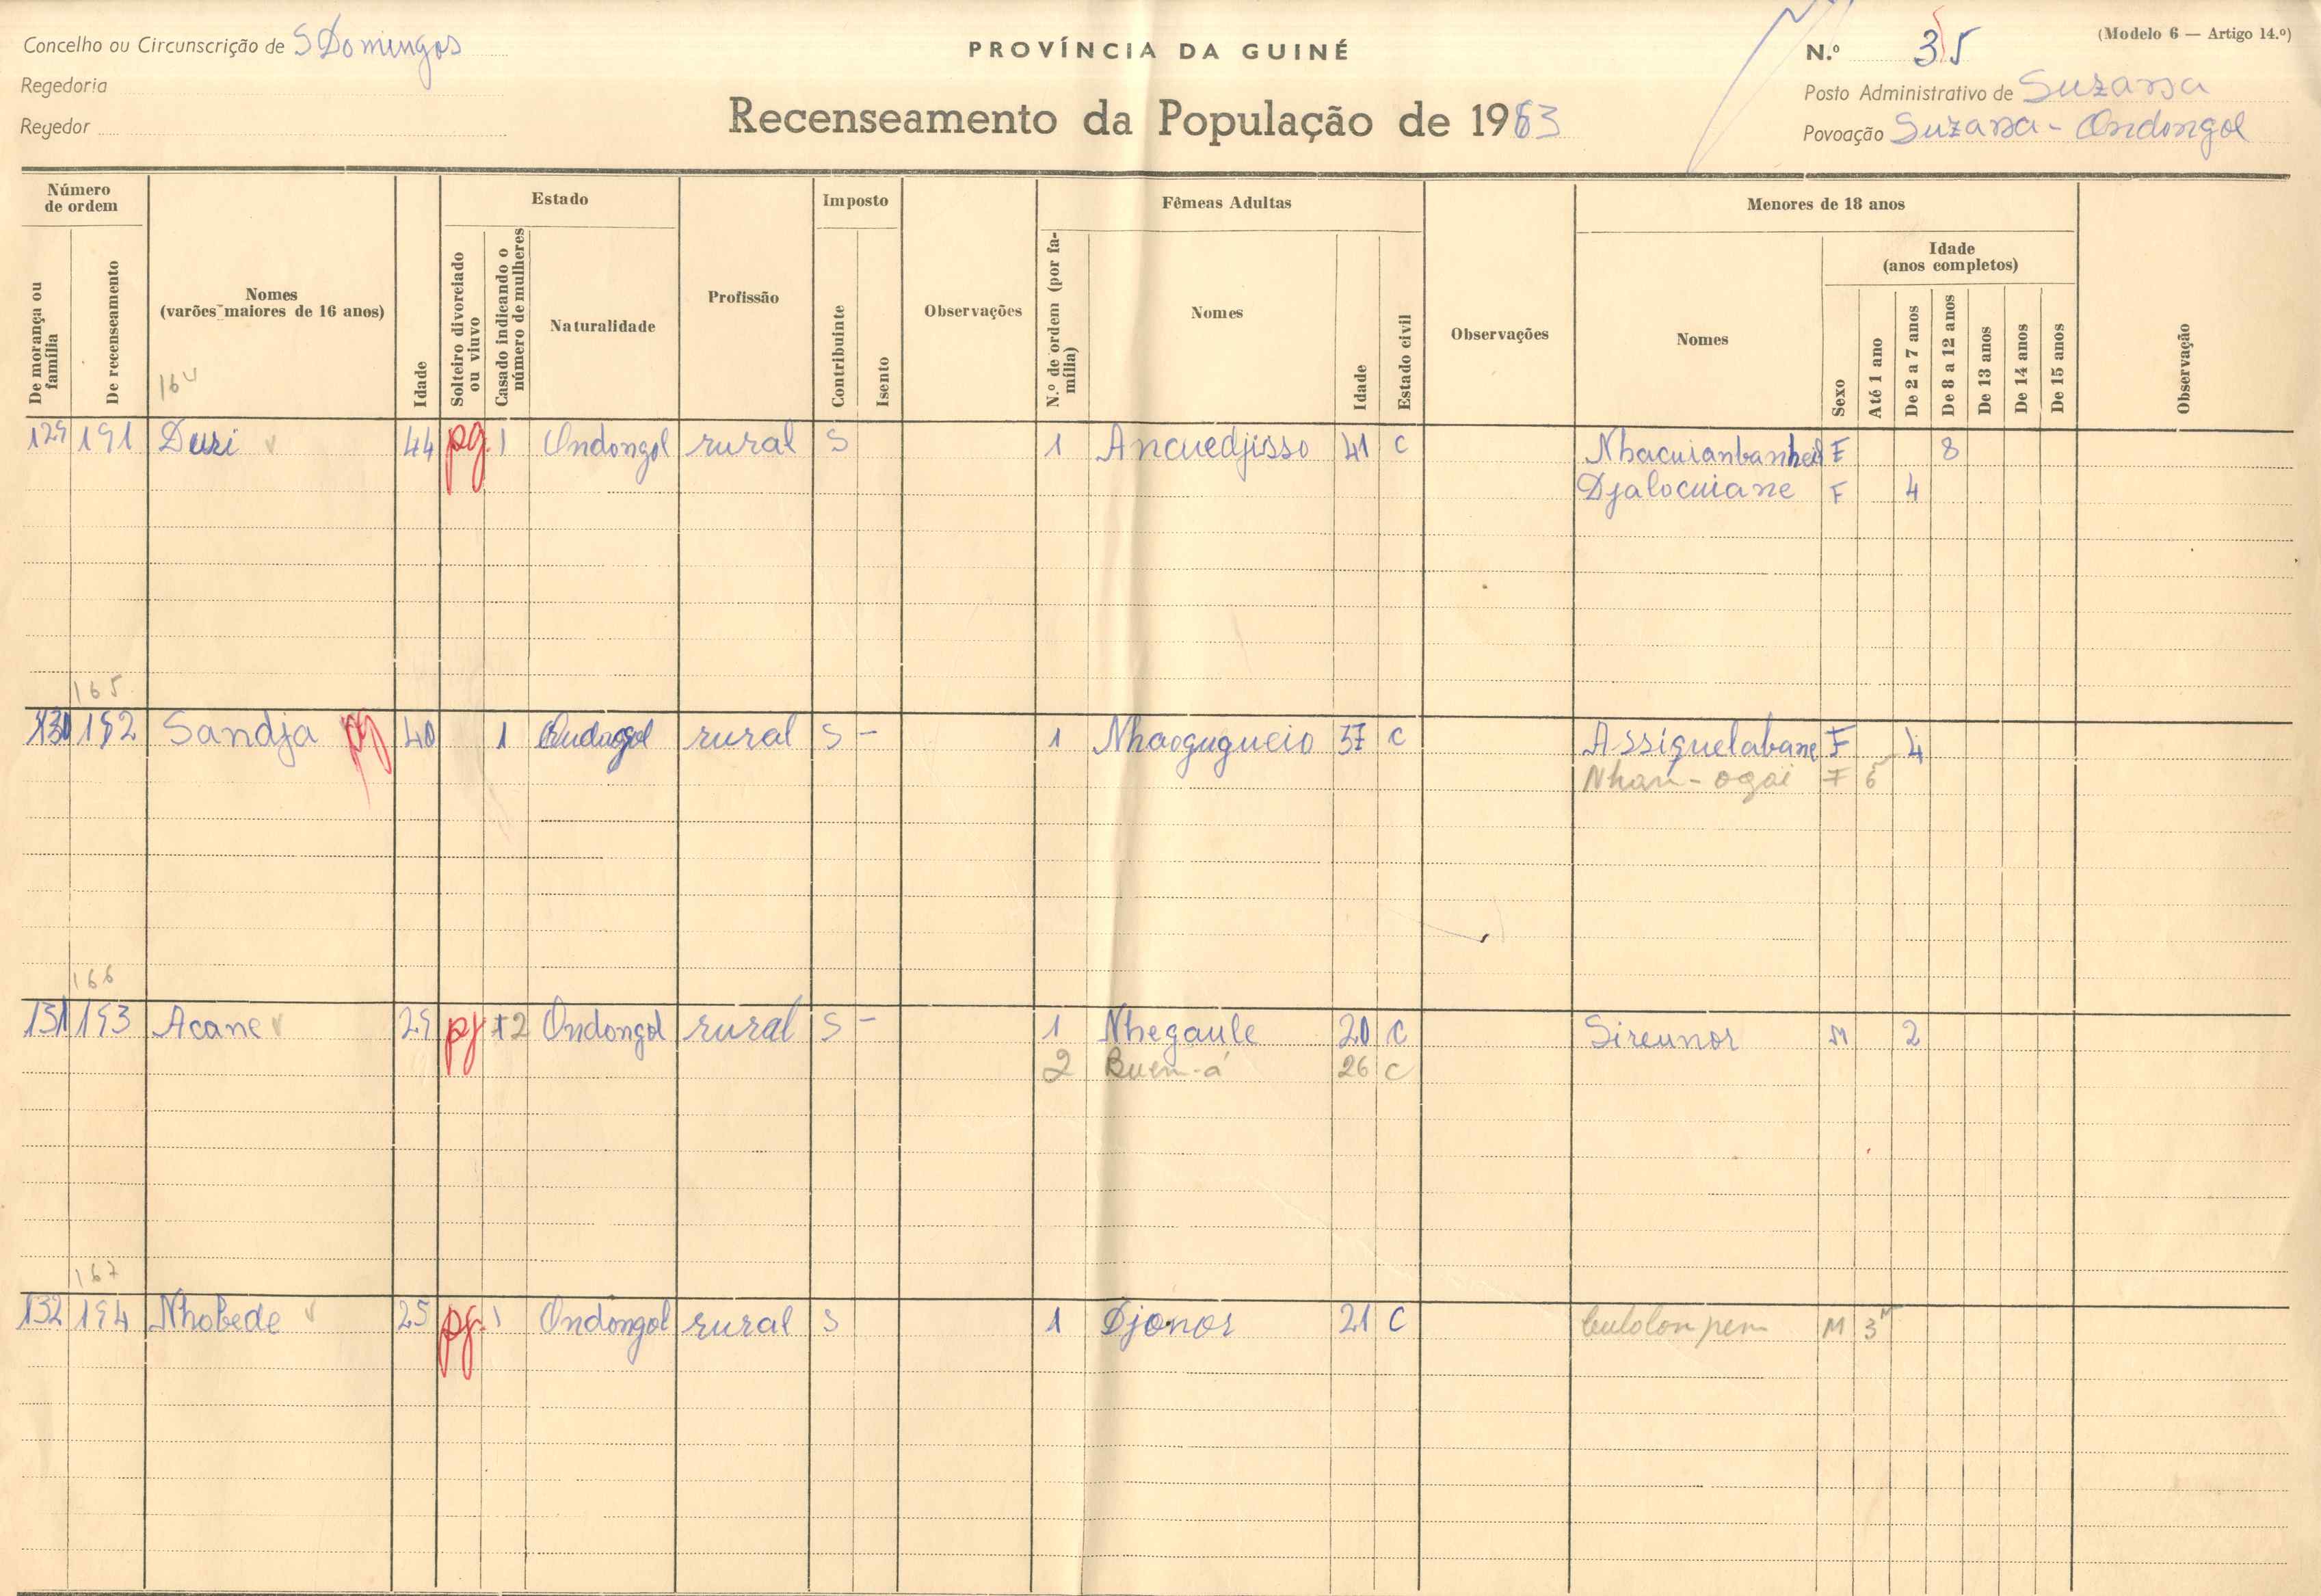 Concelho ou Circunscrição de S Domingos
Regedoria
Regedor
PROVÍNCIA DA GUINÉ
Recenseamento da População de 1963
(Modelo 6 — Artigo 14.º)
N.º 35
Posto Administrativo de Suzana
Povoação Suzana - Ondongol
Número de ordem
De morança ou família
De recenseamento
Nomes
(varões maiores de 16 anos)
164
Idade
Estado
Solteiro divorciado ou viuvo
Casado indicando o número de mulheres
Naturalidade
Profissão
Imposto
Contribuinte
Isento
Observações
Fêmeas Adultas
N.º de ordem (por família)
Nomes
Idade
Estado civil
Observações
Menores de 18 anos
Nomes
Sexo
Idade
(anos completos)
Até 1 ano
De 2 a 7 anos
De 8 a 12 anos
De 13 anos
De 14 anos
De 15 anos
Observação
129 191 Duri 44 pg. 1 Ondongol rural S 1 Ancuedjisso 41 C Nhacuianbanhed F 8
Djalocuiane F 4
165
130 192 Sandja pg 40 1 rural S - 1 Nhaogugueio 37 C Assiquelabane F 4
Nhan-ogai F 6
166
131 193 Acane 29 pg 2 Ondongol rural S - 1 Nhegaule 20 C Sireunor M 2
2 Buem-á 26 C
167
132 194 Nhobede 25 pg. 1 Ondongol rural S 1 Djonor 21 C M 3